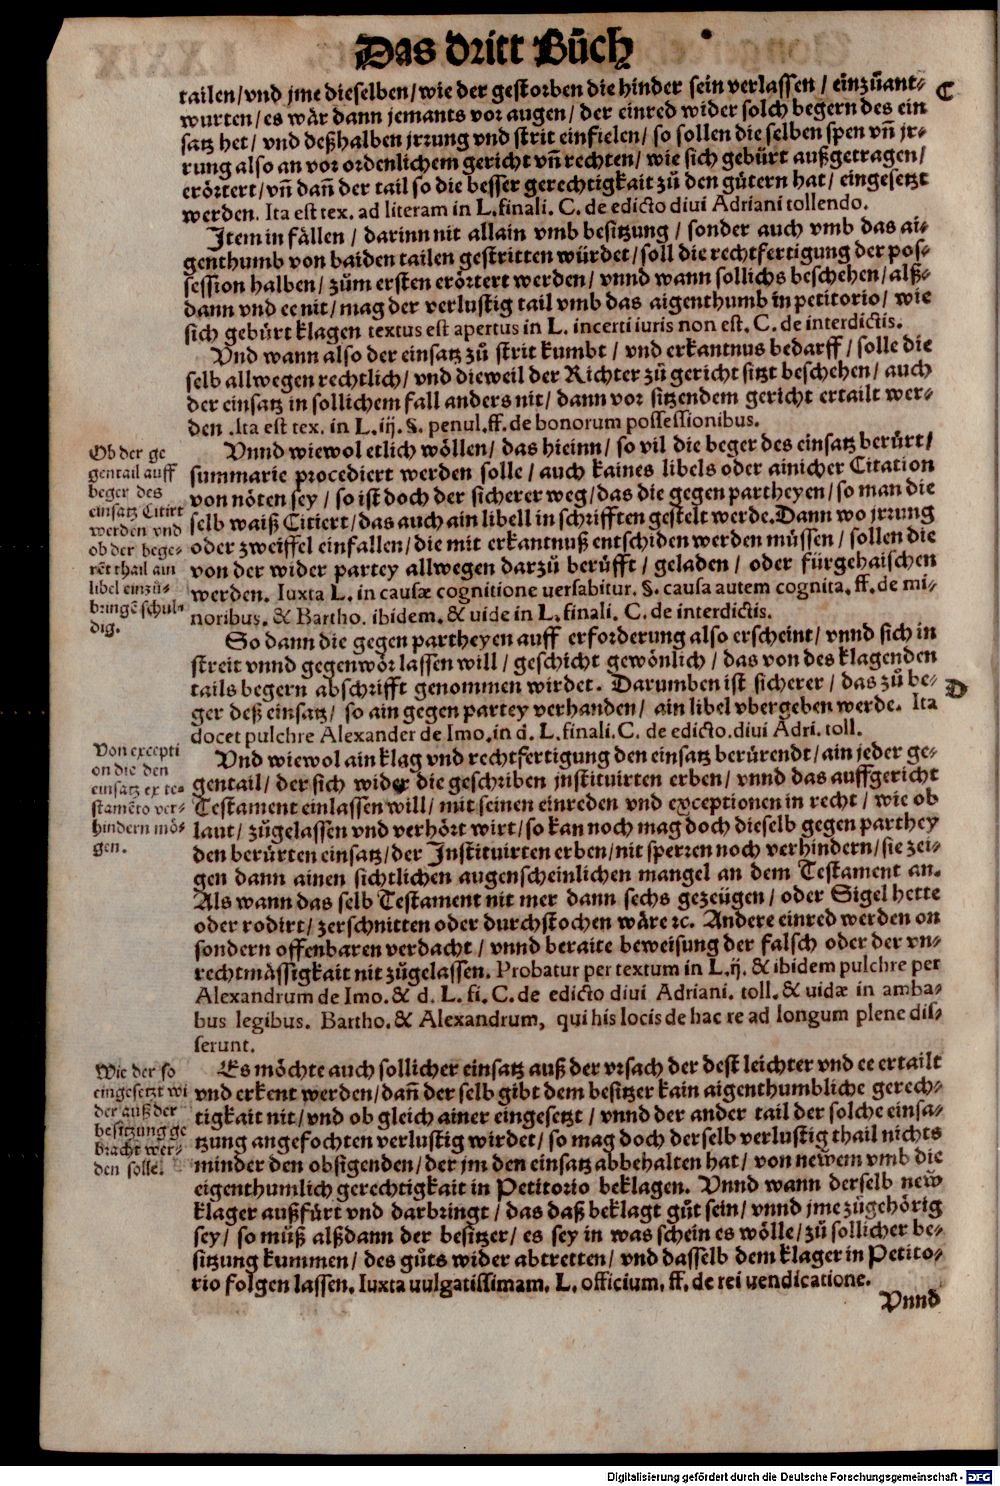 Das dritt Bůch
tailen/vnd jme dieselben/wie der gestorben die hinder sein verlassen / einzůant-
C
wurten/es wår dann jemants vor augen/ der einred wider solch begern des ein
satz het/ vnd deßhalben jrrung vnd strit einfielen/ so sollen die selben spen vñ jr-
rung also an vor ordenlichem gericht vñ rechten/ wie sich gebürt außgetragen/
erörtert/vñ dañ der tail so die besser gerechtigkait zů den gůtern hat/ eingesetzt
werden. Ita est tex. ad literam in L.finali. C. de edicto diui Adriani tollendo.
Item in fällen / darinn nit allain vmb besitzung / sonder auch vmb das ai-
genthumb von baiden tailen gestritten würdet/ soll die rechtfertigung der pos-
session halben/ zům ersten erörtert werden/ vnnd wann sollichs beschehen/alß-
dann vnd ee nit/ mag der verlustig tail vmb das aigenthumb in petitorio/ wie
sich gebürt klagen textus est apertus in L. incerti iuris non est. C. de interdictis.
Vnd wann also der einsatz zů strit kumbt / vnd erkantnus bedarff/ solle die
selb allwegen rechtlich/ vnd dieweil der Richter zů gericht sitzt beschehen/ auch
der einsatz in sollichem fall anders nit/ dann vor sitzendem gericht ertailt wer-
den .Ita est tex. in L. iij. §. penul. ff. de bonorum possessionibus.
Ob der ge
gentail auff
beger des
einsatz Citirt
werden vnd
ob der bege-
rēt thail ain
libel einzů-
bringē schul-
dig.
Vnnd wiewol etlich wöllen/ das hieinn/ so vil die beger des einsatz berürt/
summarie procediert werden solle/ auch kaines libels oder ainicher Citation
von nöten sey / so ist doch der sicherer weg/das die gegen partheyen/so man die
selb waiß Citiert/das auch ain libell in schrifften gestelt werde.Dann wo jrrung
oder zweiffel einfallen/die mit erkantnuß entschiden werden müssen/ sollen die
von der wider partey allwegen darzů berüfft/ geladen/ oder fürgehaischen
werden. Iuxta L. in causæ cognitione uersabitur. §. causa autem cognita. ff. de mi-
noribus. & Bartho. ibidem. & uide in L. finali. C. de interdictis.
So dann die gegen partheyen auff erforderung also erscheint/ vnnd sich in
streit vnnd gegenwör lassen will / geschicht gewönlich / das von des klagenden
tails begern abschrifft genommen wirdet. Darumben ist sicherer / das zů be-
D
ger deß einsatz/ so ain gegen partey verhanden/ ain libel vbergeben werde. Ita
docet pulchre Alexander de Imo.in d. L. finali. C. de edicto.diui Adri. toll.
Von excepti
on die den
einsatz ex te-
stamēto ver-
hindern mö-
gen.
Vnd wiewol ain klag vnd rechtfertigung den einsatz berürendt/ain jeder ge-
gentail/ der sich wider die geschriben jnstituirten erben/ vnnd das auffgericht
Testament einlassen will/ mit seinen einreden vnd exceptionen in recht/ wie ob
laut/ zůgelassen vnd verhört wirt/so kan noch mag doch dieselb gegen parthey
den berürten einsatz/der Instituirten erben/nit sperren noch verhindern/sie zei-
gen dann ainen sichtlichen augenscheinlichen mangel an dem Testament an.
Als wann das selb Testament nit mer dann sechs gezeügen/ oder Sigel hette
oder rodirt/ zerschnitten oder durchstochen wäre ꝛc. Andere einred werden on
sondern offenbaren verdacht/ vnnd beraite beweisung der falsch oder der vn-
rechtmässigkait nit zůgelassen. Probatur per textum in L. ij. & ibidem pulchre per
Alexandrum de Imo. & d. L. fi. C. de edicto diui Adriani. toll. & uidæ in amba-
bus legibus. Bartho. & Alexandrum, qui his locis de hac re ad longum plene dis-
serunt.
Wie der so
eingesetzt wi
der auß der
besitzung ge
bracht wer-
den solle.
Es möchte auch sollicher einsatz auß der vrsach der dest leichter vnd ee ertailt
vnd erkent werden/dañ der selb gibt dem besitzer kain aigenthumbliche gerech-
tigkait nit/vnd ob gleich ainer eingesetzt/ vnnd der ander tail der solche einsa-
tzung angefochten verlustig wirdet/ so mag doch derselb verlustig thail nichts
minder den obsigenden/der jm den einsatz abbehalten hat/ von newem vmb die
eigenthumlich gerechtigkait in Petitorio beklagen. Vnnd wann derselb new
klager außfürt vnd darbringt/ das daß beklagt gůt sein/ vnnd jme zůgehörig
sey/ so můß alßdann der besitzer/ es sey in was schein es wölle/ zů sollicher be-
sitzung kummen/ des gůts wider abtretten/ vnd dasselb dem klager in Petito-
rio folgen lassen. Iuxta uulgatissimam. L. officium. ff. de rei uendicatione.
Vnnd
Digitalisierung gefördert durch die Deutsche Forschungsgemeinschaft - DFG